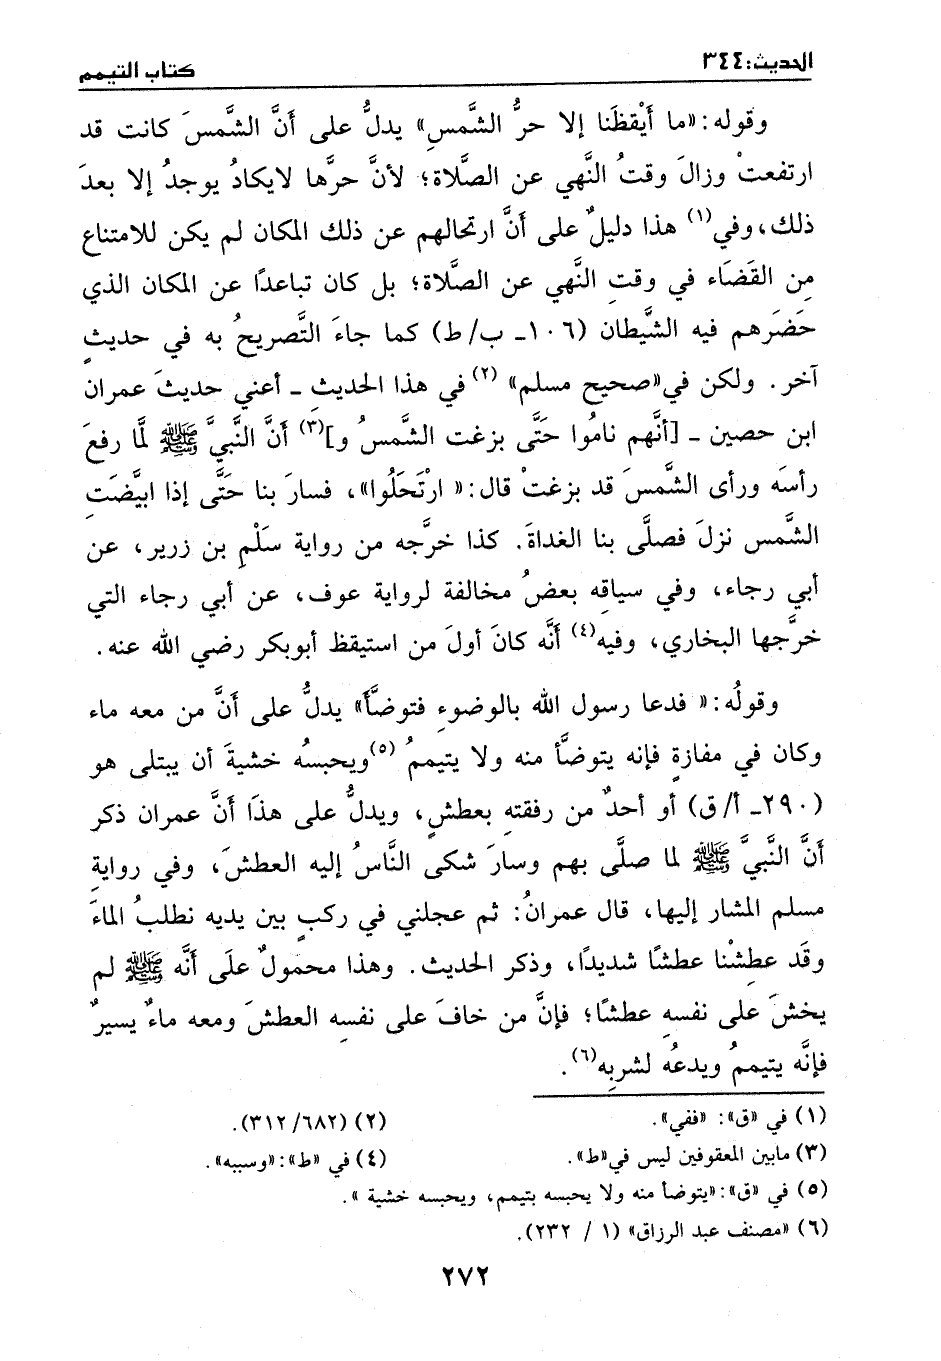 الحديث: ٣٤٤
كتاب التيمم
وقوله: «ما أَيْقظَنا إلا حرُّ الشَّمسِ» يدلُّ على أَنَّ الشَّمسَ كانت قد
ارتفعتْ وزالَ وقتُ النَّهي عن الصَّلاة؛ لأنَّ حرَّها لايكادُ يوجدُ إلا بعدَ
ذلك، وفي(١) هذا دليلٌ على أَنَّ ارتحالهم عن ذلك المكان لم يكن للامتناع
مِن القَضَاء في وقتِ النَّهي عن الصَّلاة؛ بل كان تباعدًا عن المكان الذي
حَضَرهم فيه الشَّيطان (١٠٦ـ ب/ ط) كما جاءَ التَّصريحُ به في حديثٍ
آخر. ولكن في «صحيح مسلم» (٢) في هذا الحديثِ ـ أعني حديثَ عمران
ابن حصين ـ [أنَّهم نامُوا حَتَّى بزغت الشَّمسُ و](٣) أَنَّ النَّبيَّ ﷺ لمَّا رفعَ
رأسَه ورأى الشَّمسَ قد بزغتْ قال: « ارْتَحَلُوا»، فسارَ بنا حَتَّى إذا ابيَّضَتِ
الشَّمس نزلَ فصلَّى بنا الغداةَ. كذا خرَّجه من رواية سَلْمِ بن زرير، عن
أبي رجاء، وفي سياقِه بعضُ مخالفة لرواية عوف، عن أبي رجاء التي
خرَّجها البخاري، وفيه(٤) أنَّه كانَ أولَ من استيقظ أبوبكر رضي الله عنه.
وقولُه: « فدعا رسول الله بالوضوءِ فتوضَّأَ» يدلُّ على أَنَّ من معه ماء
وكان في مفازةٍ فإنه يتوضَّأ منه ولا يتيممُ (٥) ويحبسُه خشيةَ أن يبتلى هو
(٢٩٠ـ أ/ ق) أو أحدٌ من رفقتهِ بعطشٍ، ويدلُّ على هذَا أَنَّ عمران ذكر
أَنَّ النَّبيَّ ﷺ لما صلَّى بهم وسارَ شكى النَّاسُ إليه العطشَ، وفي روايةِ
مسلم المشار إليها، قال عمرانُ: ثم عجلني في ركبٍ بين يديه نطلبُ الماءَ
وقَد عطِشْنا عطشًا شديدًا، وذكر الحديث. وهذا محمولٌ علَى أنَّه ﷺ لم
يخشَ على نفسهِ عطشًا؛ فإنَّ من خافَ على نفسِه العطشَ ومعه ماءٌ يسيرٌ
فإنَّه يتيممُ ويدعُه لشربِه(٦).
(١) في «ق»: «ففي».
(٢) (٣١٢/٦٨٢).
(٣) مابين المعقوفين ليس في «ط».
(٤) في «ط»: «وسببه».
(٥) في «ق»: «يتوضأ منه ولا يحبسه بتيمم، ويحبسه خشية ».
(٦) «مصنف عبد الرزاق» (١ / ٢٣٢).
٢٧٢